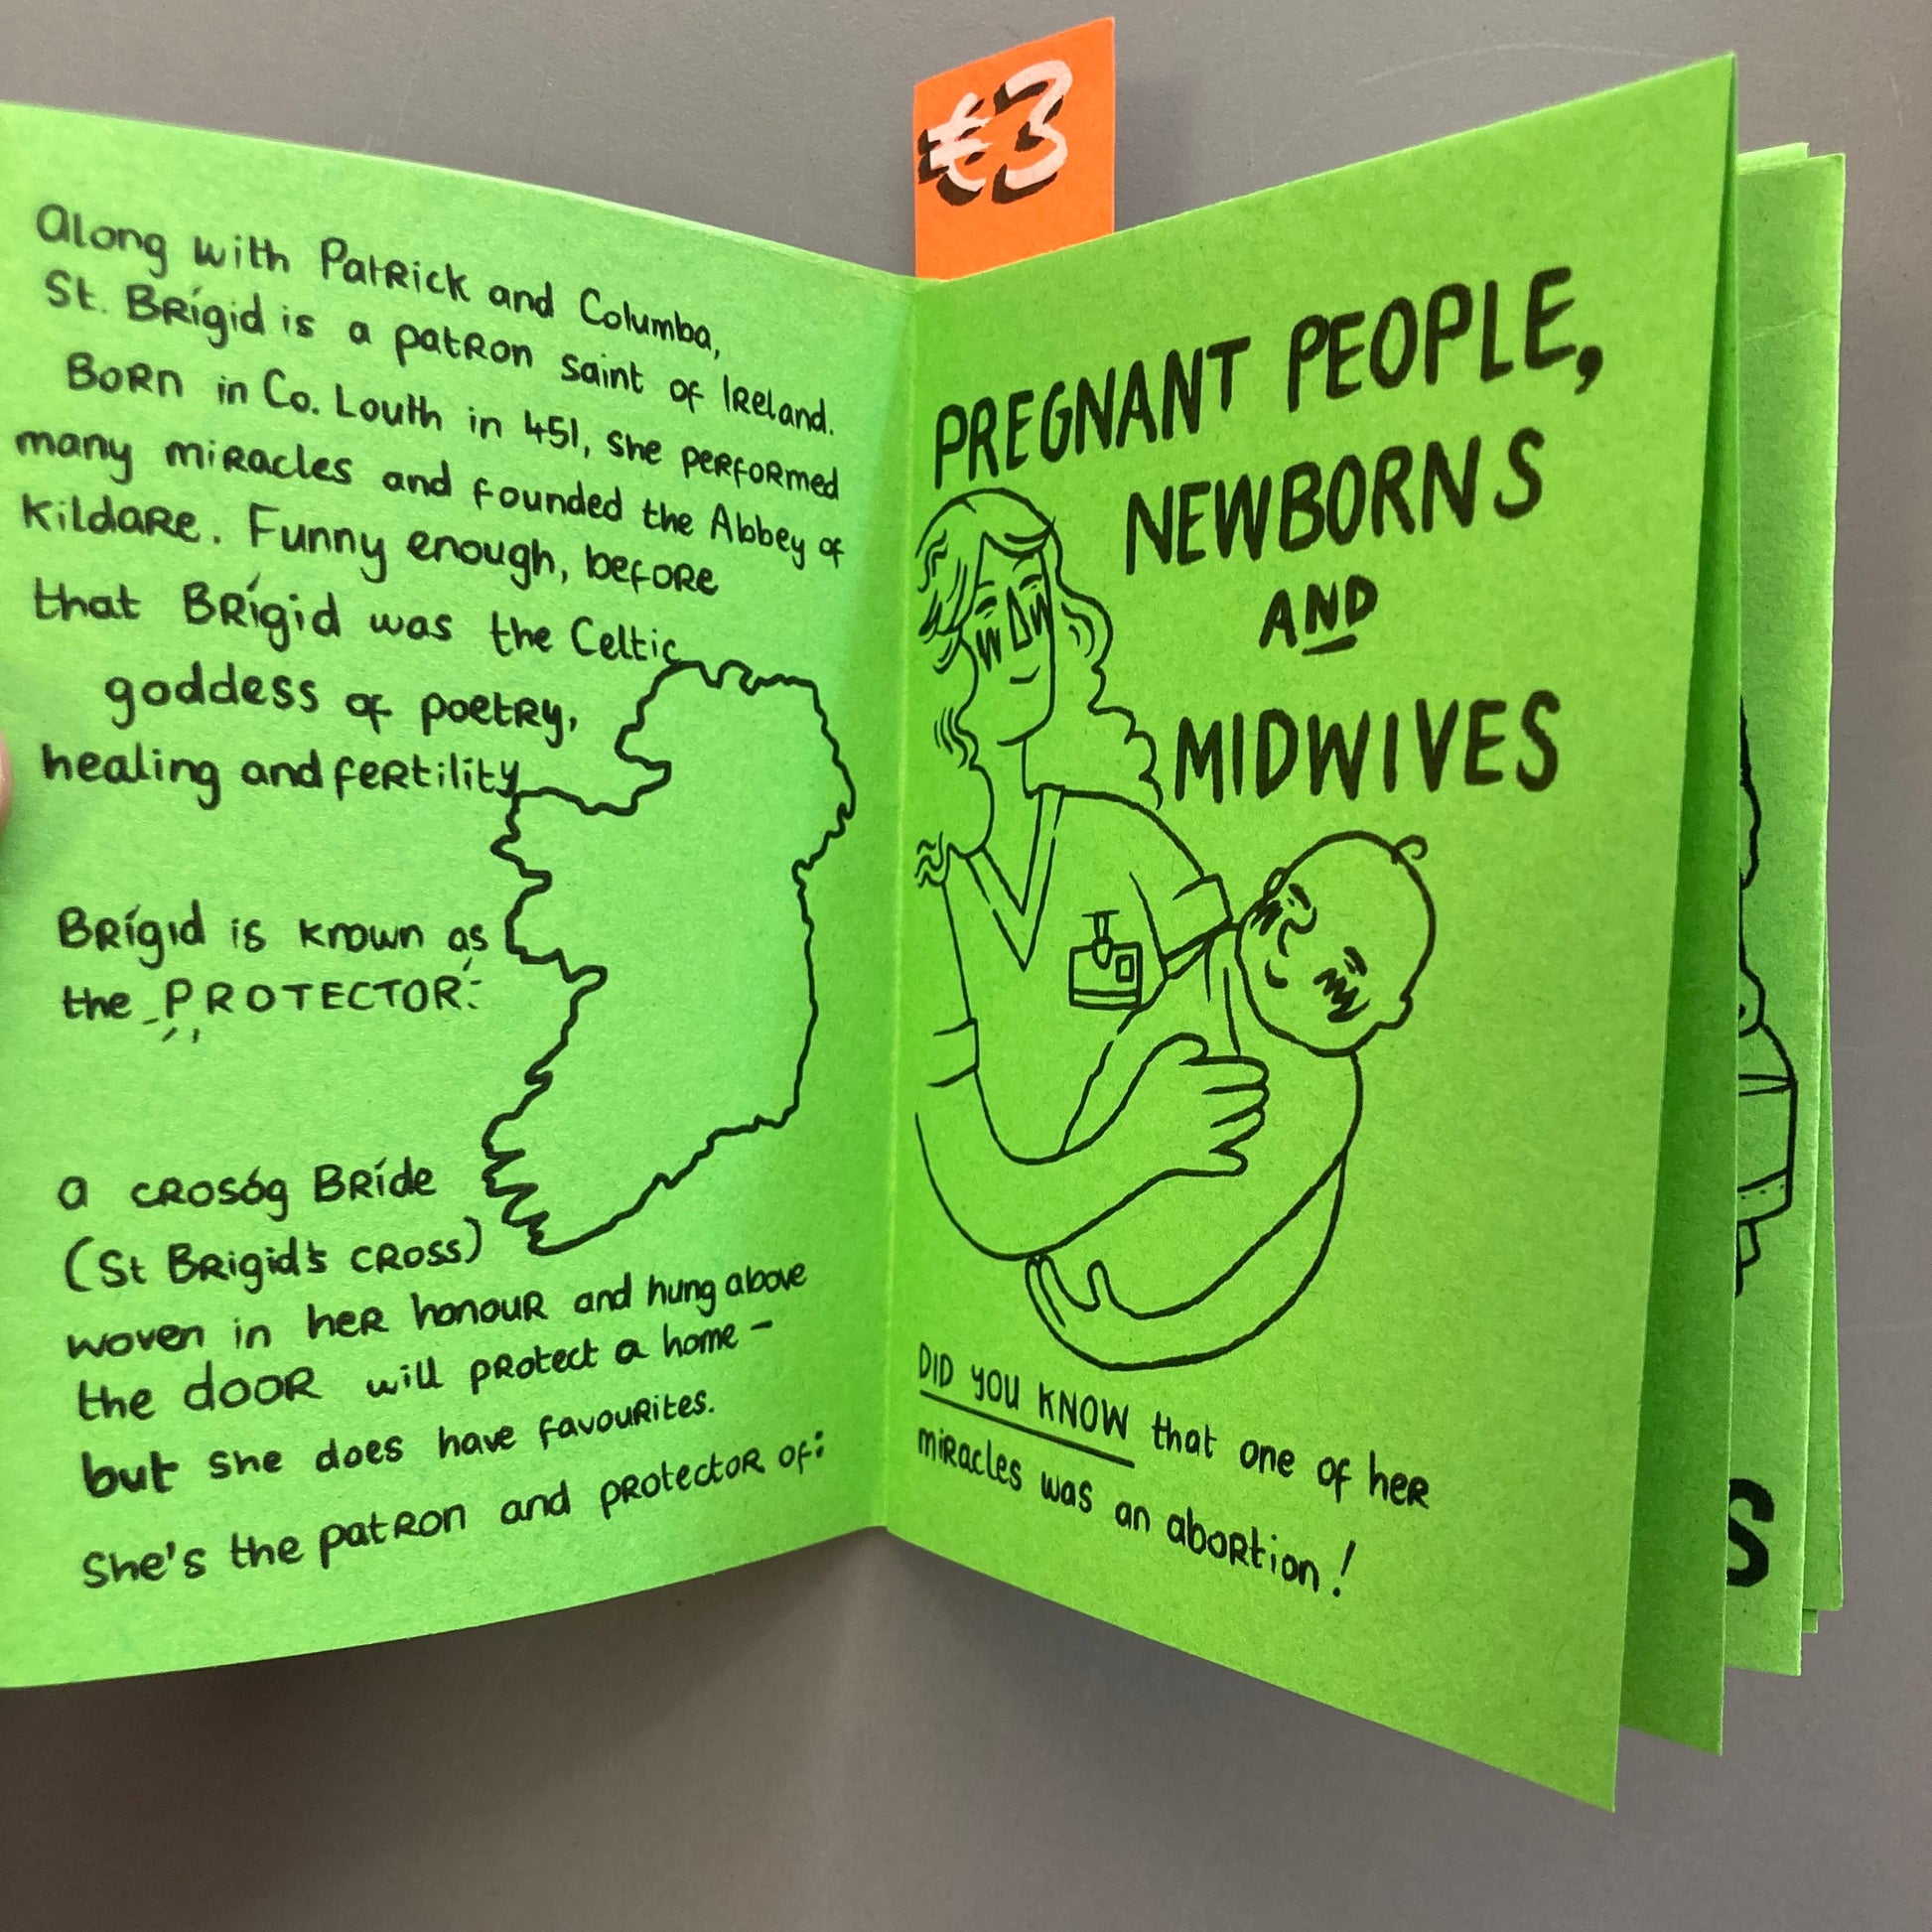 €3
Along with Patrick and Columba,
St. Brígid is a patron saint of Ireland.
Born in Co. Louth in 451, she performed
many miracles and founded the Abbey of
Kildare. Funny enough, before
that Brígid was the Celtic
goddess of poetry,
healing and fertility
Brígid is known as
the PROTECTOR:
a crosóg Bríde
(St Brigid's cross)
woven in her honour and hung above
the door will protect a home -
but she does have favourites.
She's the patron and protector of:
PREGNANT PEOPLE,
NEWBORNS
AND
MIDWIVES
DID YOU KNOW that one of her
miracles was an abortion!
S